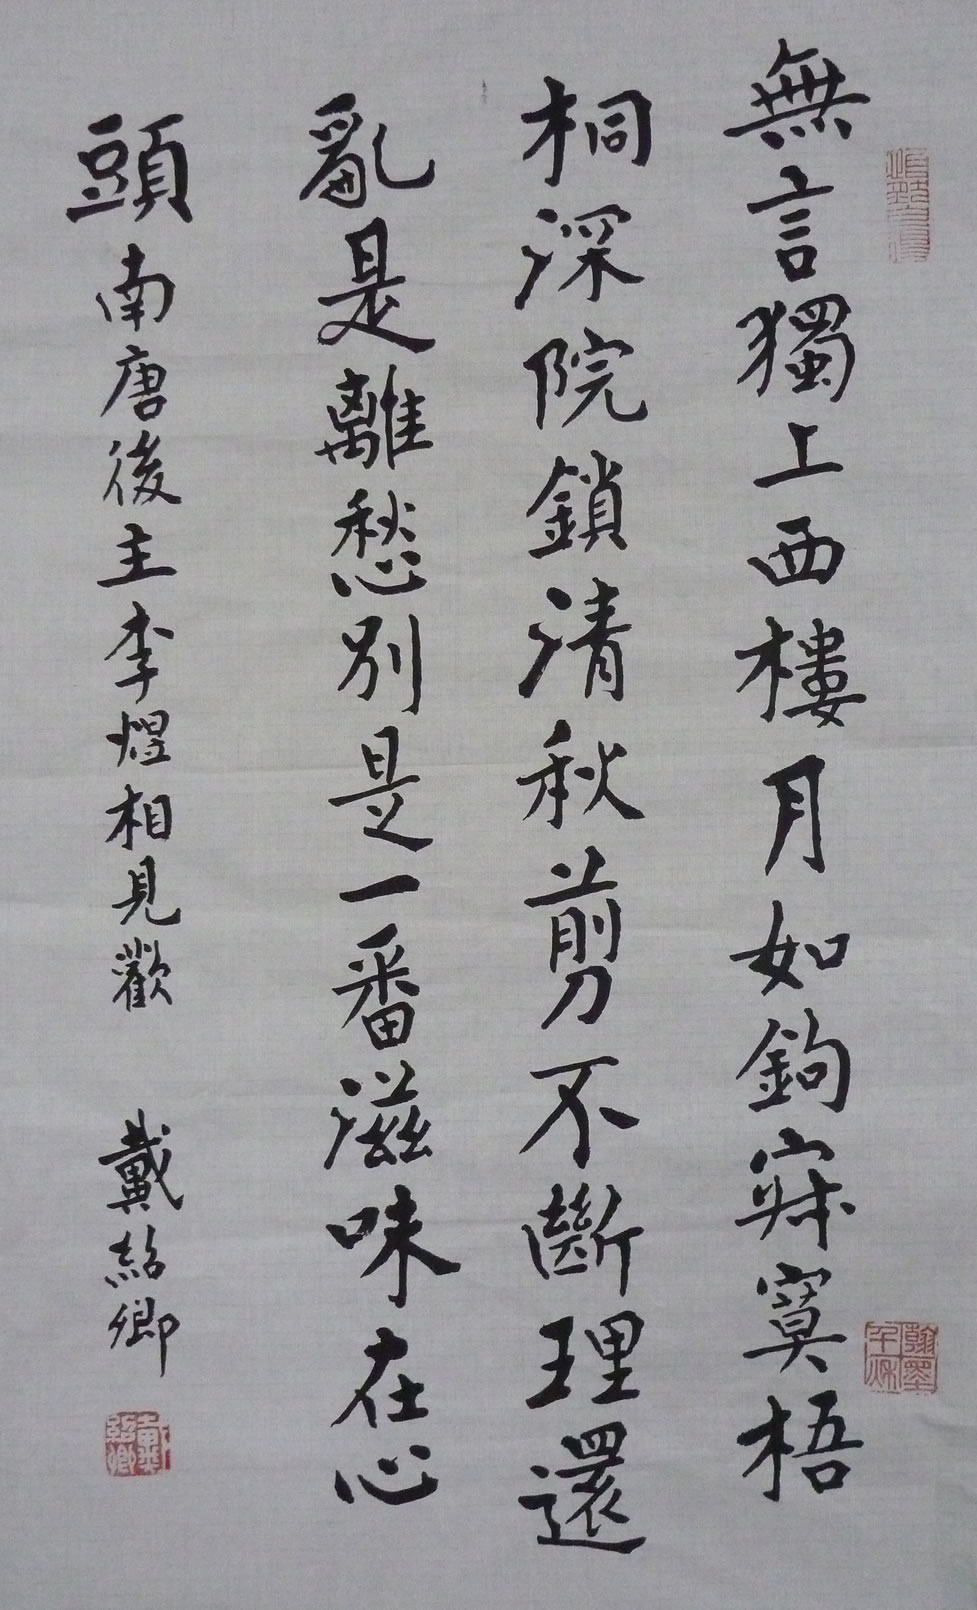 無言獨上西樓月如鉤寂寞梧
桐深院鎖清秋剪不斷理還
亂是離愁別是一番滋味在心
頭南唐後主李煜相見歡 戴紹卿
翰墨千秋
戴紹卿